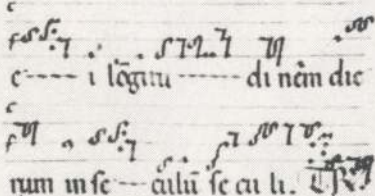 e---- i lõgitu ------ di nẽm die
rum in se -- culũ se cu li.